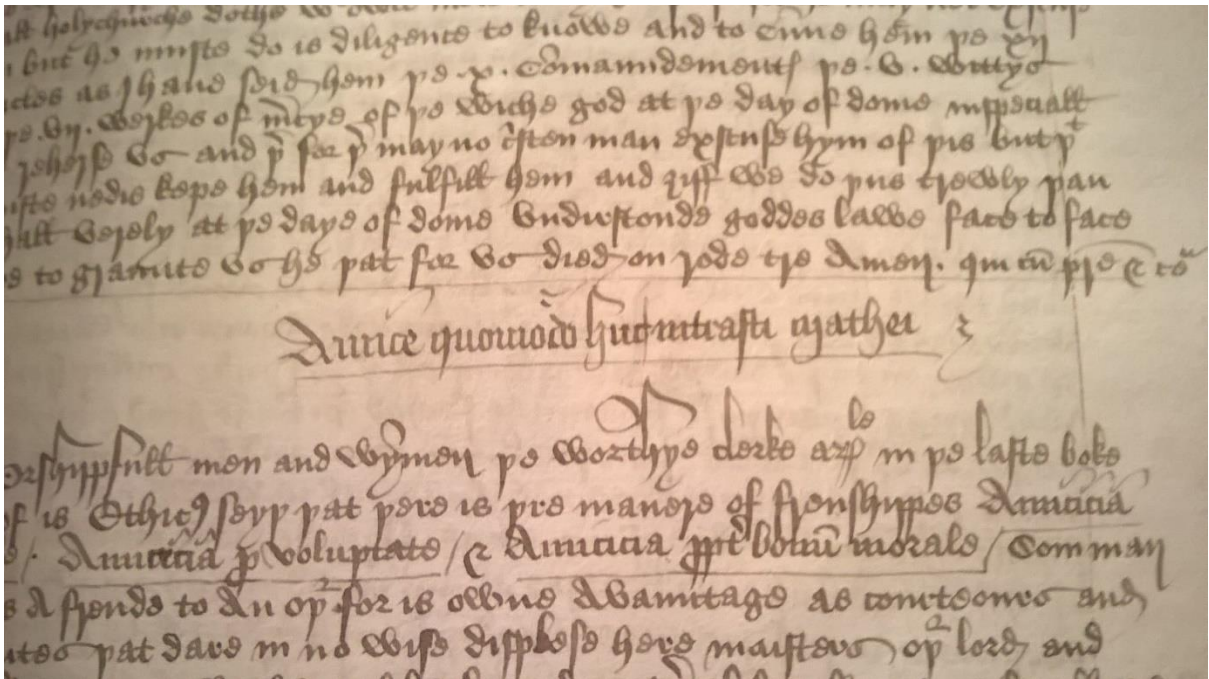 holychurche dothe
but he muste do is diligence to knowe and to cunne hem þe xij
as I haue seid hem þe .x. Comaundementꝭ þe .v. wittys
þe .vij. werkes of m̄cye of þe wiche god at þe day of dome inspeciall
reherse vs and for may no c̄sten man exscuse hym of þis but þᵗ
nedis kepe hem and fulfill hem and ȝiff we do þus trewly þan
verely at þe daye of dome vndurstonde goddes lawe face to face
to graunte vs he þat for vs died on rode tre Amen. qui cū pr̄e &
Amice quomodo huc intrasti Mathei
men and wymen þe worthye clerke in þe laste boke
of is Ethicꝰ seyþ þat þere is þre manere of frenshippes Amicicia
Amicicia ꝓ voluptate / & Amicicia bonū morale / Som man
A frende to An oþʳ for is owne Avauntage as and
þat dare in no wise displese here maisters oþʳ lord and